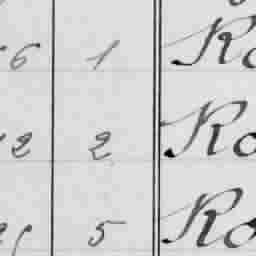 6 1 Ro
2 2 Ro
5 Ro